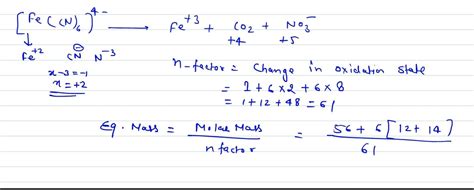 [Fe(CN)₆]⁴⁻ → Fe⁺³ + CO₂ + NO₃⁻
+4 +5
Fe⁺² C⊖N N⁻³
x-3=-1
x=+2
n-factor = Change in oxidation state
= 1+6×2+6×8
= 1+12+48 = 61
Eq. Mass = Molar Mass / n factor = 56+6[12+14] / 61